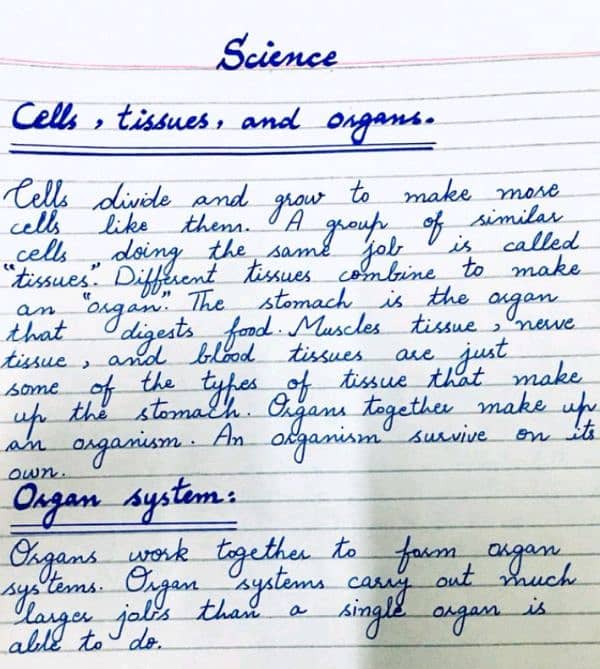 Science
Cells, tissues, and organs.
Cells divide and grow to make more
cells like them. A group of similar
cells doing the same job is called
"tissues". Different tissues combine to make
an "organ". The stomach is the organ
that digests food. Muscles tissue, nerve
tissue, and blood tissues are just
some of the types of tissue that make
up the stomach. Organs together make up
an organism. An organism survive on its
own.
Organ system:
Organs work together to form organ
systems. Organ systems carry out much
larger jobs than a single organ is
able to do.